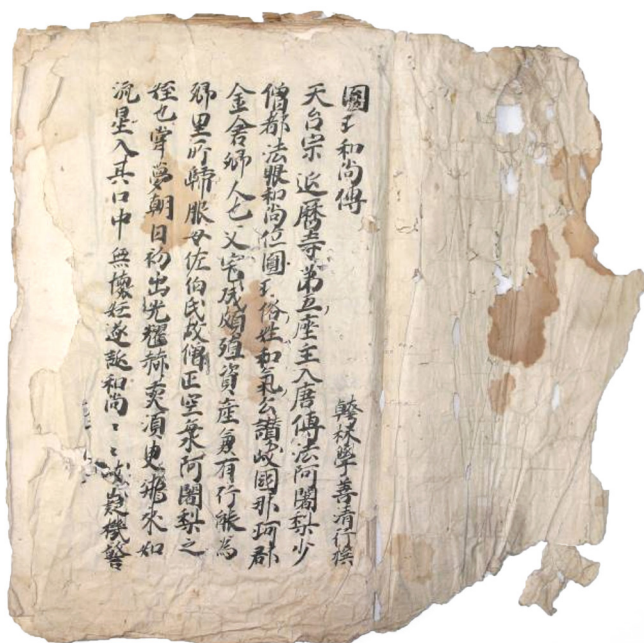 圓珎和尚傳
翰林學善清行撰
天台宗延曆寺第五座主入唐傳法阿闍梨少
僧都法眼和尚位圓珎俗姓和氣公讃岐國那珂郡
金倉鄉人也父宅成頗殖資產兼有行能為
鄉里所歸服母佐伯氏故僧正空海阿闍梨之
姪也甞夢朝日初出光耀赫奕須臾飛來如
流星入其口中無懷妊遂誕和尚〻〻岐嶷機警